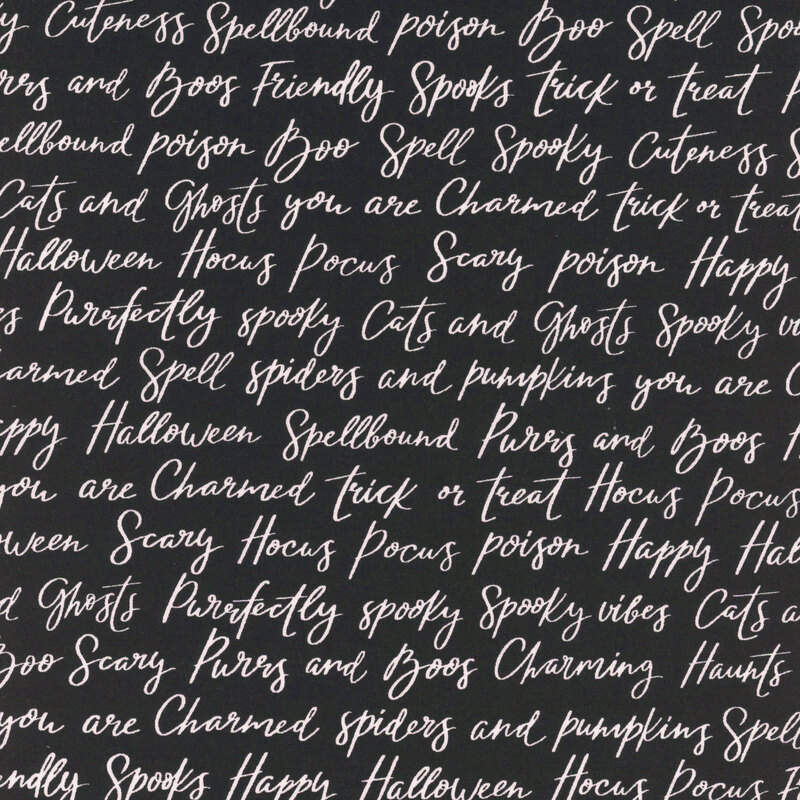 y Cuteness Spellbound poison Boo Spell Spoo
urrs and Boos Friendly Spooks trick or treat P
pellbound poison Boo Spell Spooky Cuteness S
Cats and Ghosts you are Charmed trick or treat
Halloween Hocus Pocus Scary poison Happy
es Purrfectly spooky Cats and Ghosts Spooky vi
harmed Spell spiders and pumpkins you are C
appy Halloween Spellbound Purrs and Boos H
you are Charmed trick or treat Hocus Pocus
oween Scary Hocus Pocus poison Happy Hal
d Ghosts Purrfectly spooky Spooky vibes Cats a
Boo Scary Purrs and Boos Charming Haunts
you are Charmed spiders and pumpkins Spell
endly Spooks Happy Halloween Hocus Pocus F